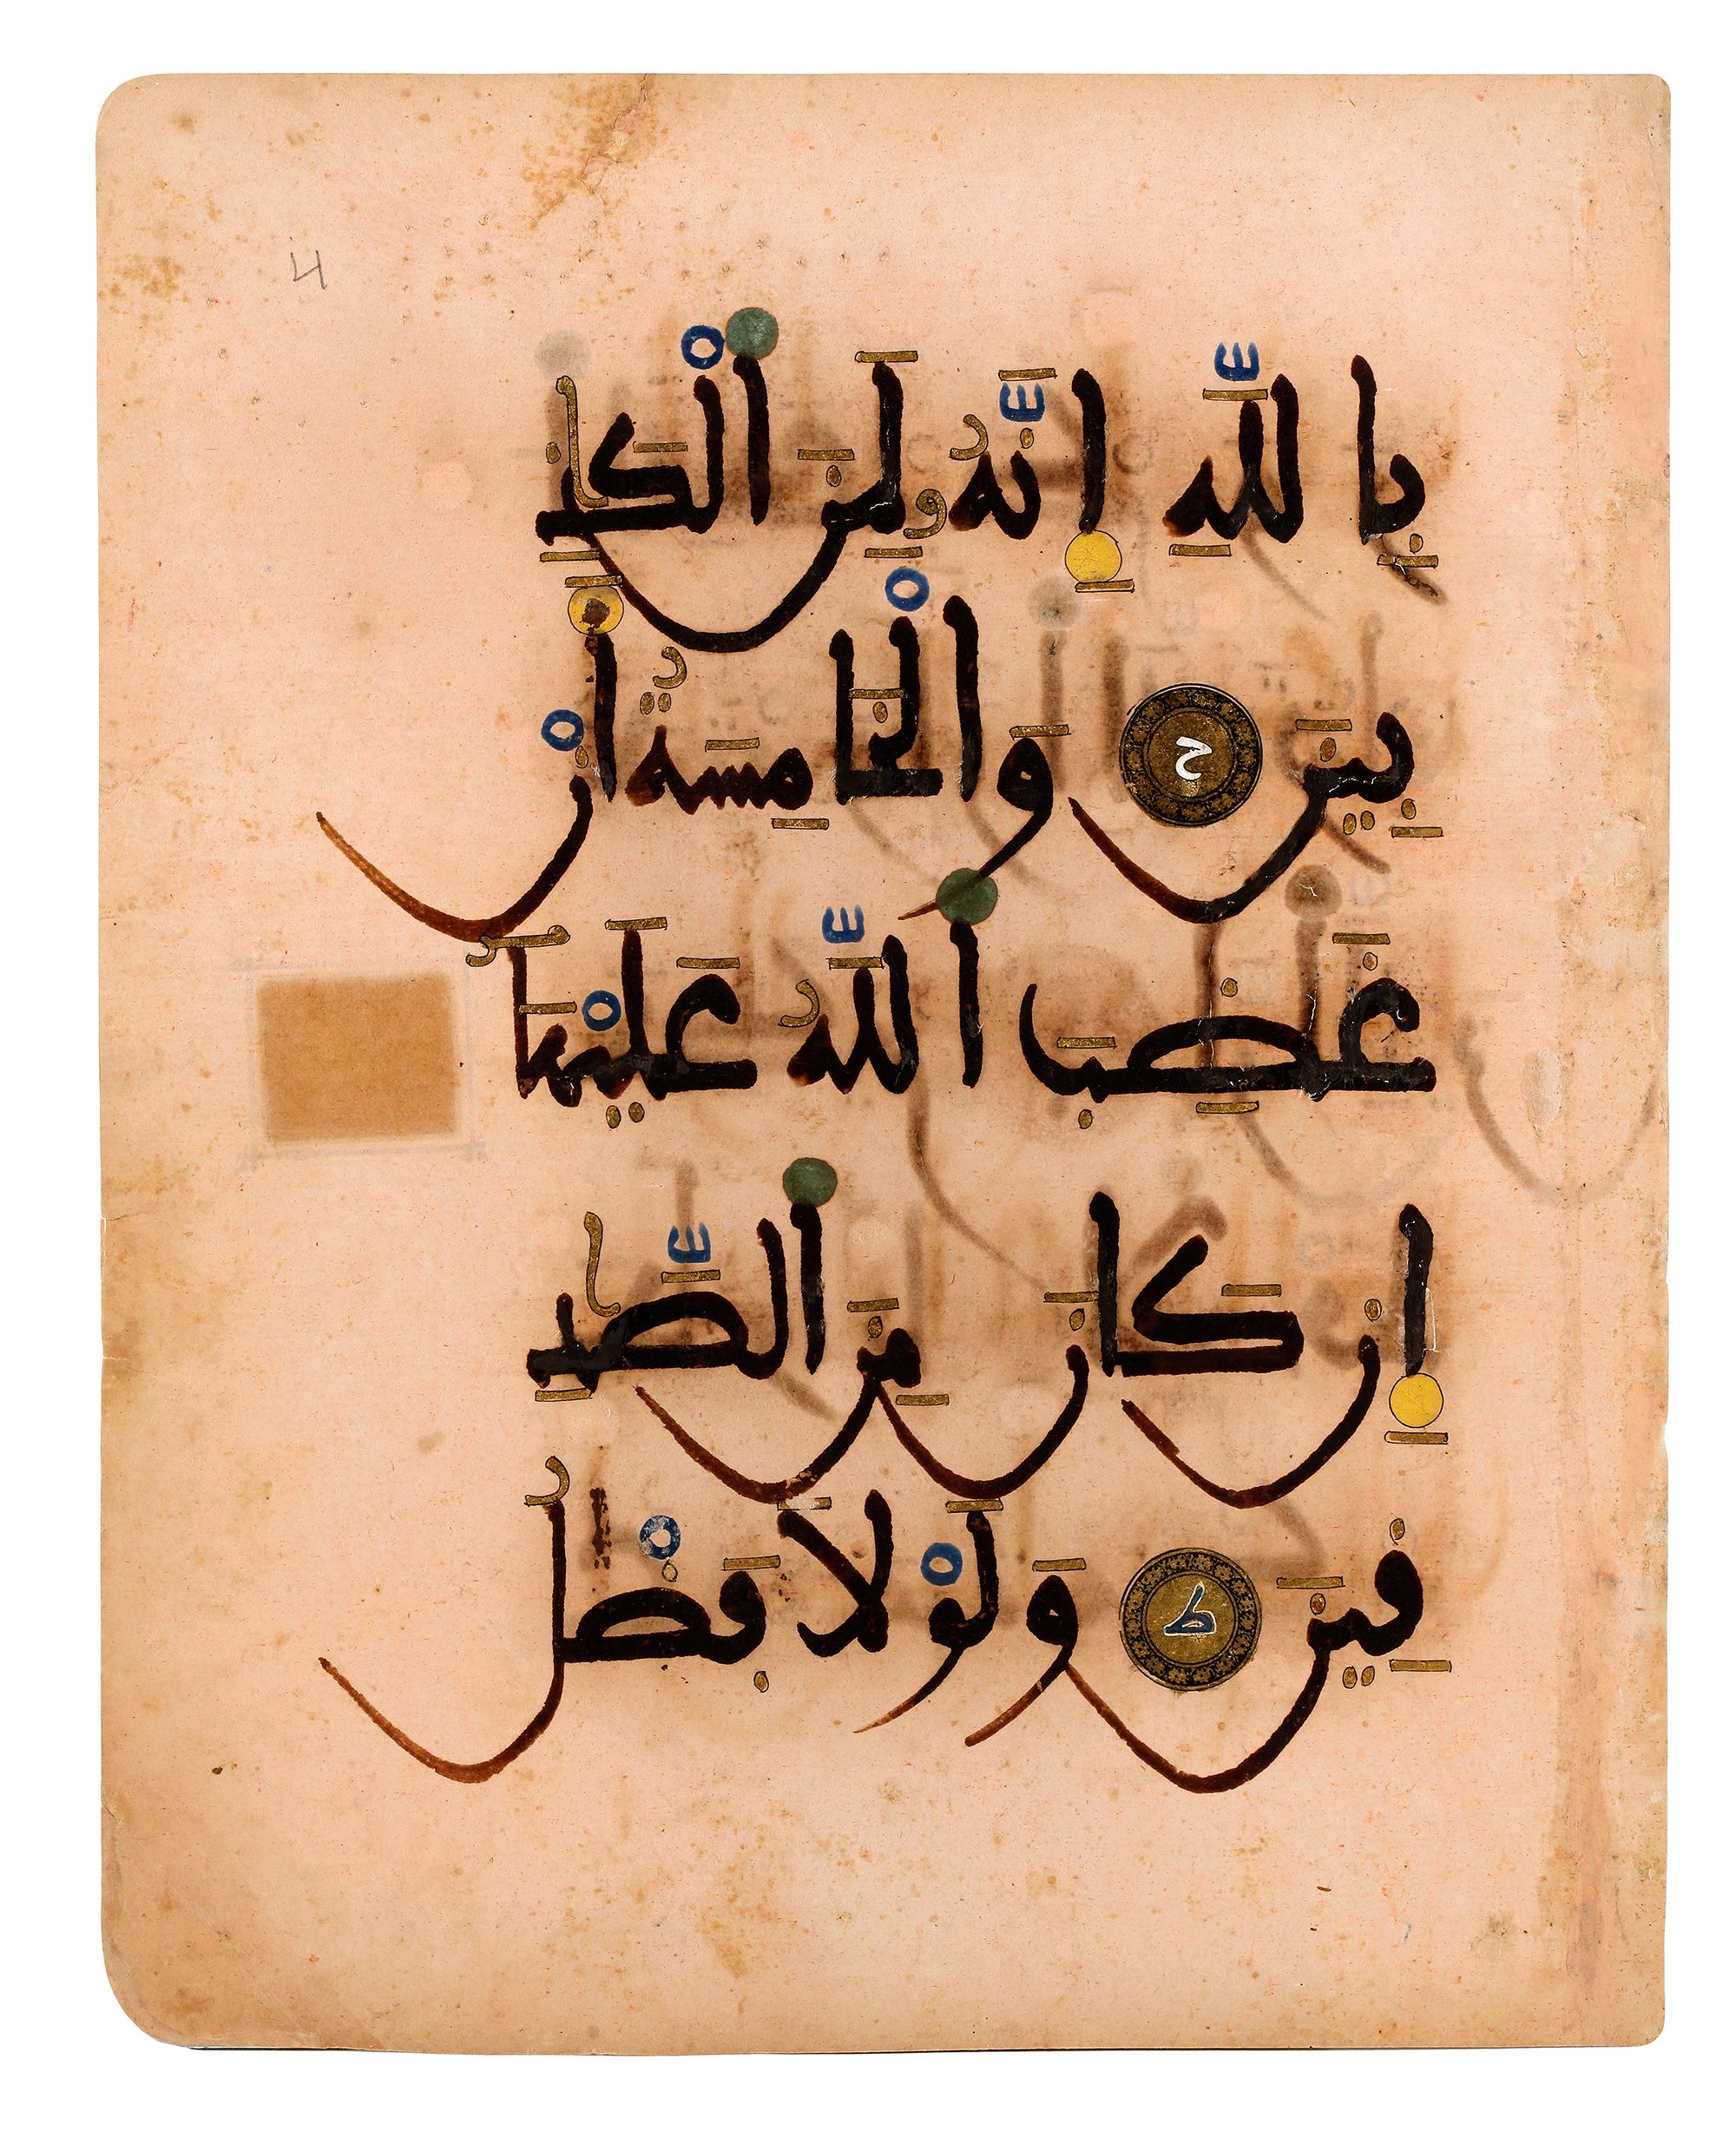 بِاللَّهِ إِنَّهُۥ لَمِنَ ٱلْكَـٰذِ
بِينَ ح وَالْخَامِسَةُ أَنْ
غَضِبَ ٱللَّهُ عَلَيْهَا
إِن كَانَ مِنَ ٱلصَّـٰدِ
قِينَ ط وَلَوْلَا فَضْلُ
4